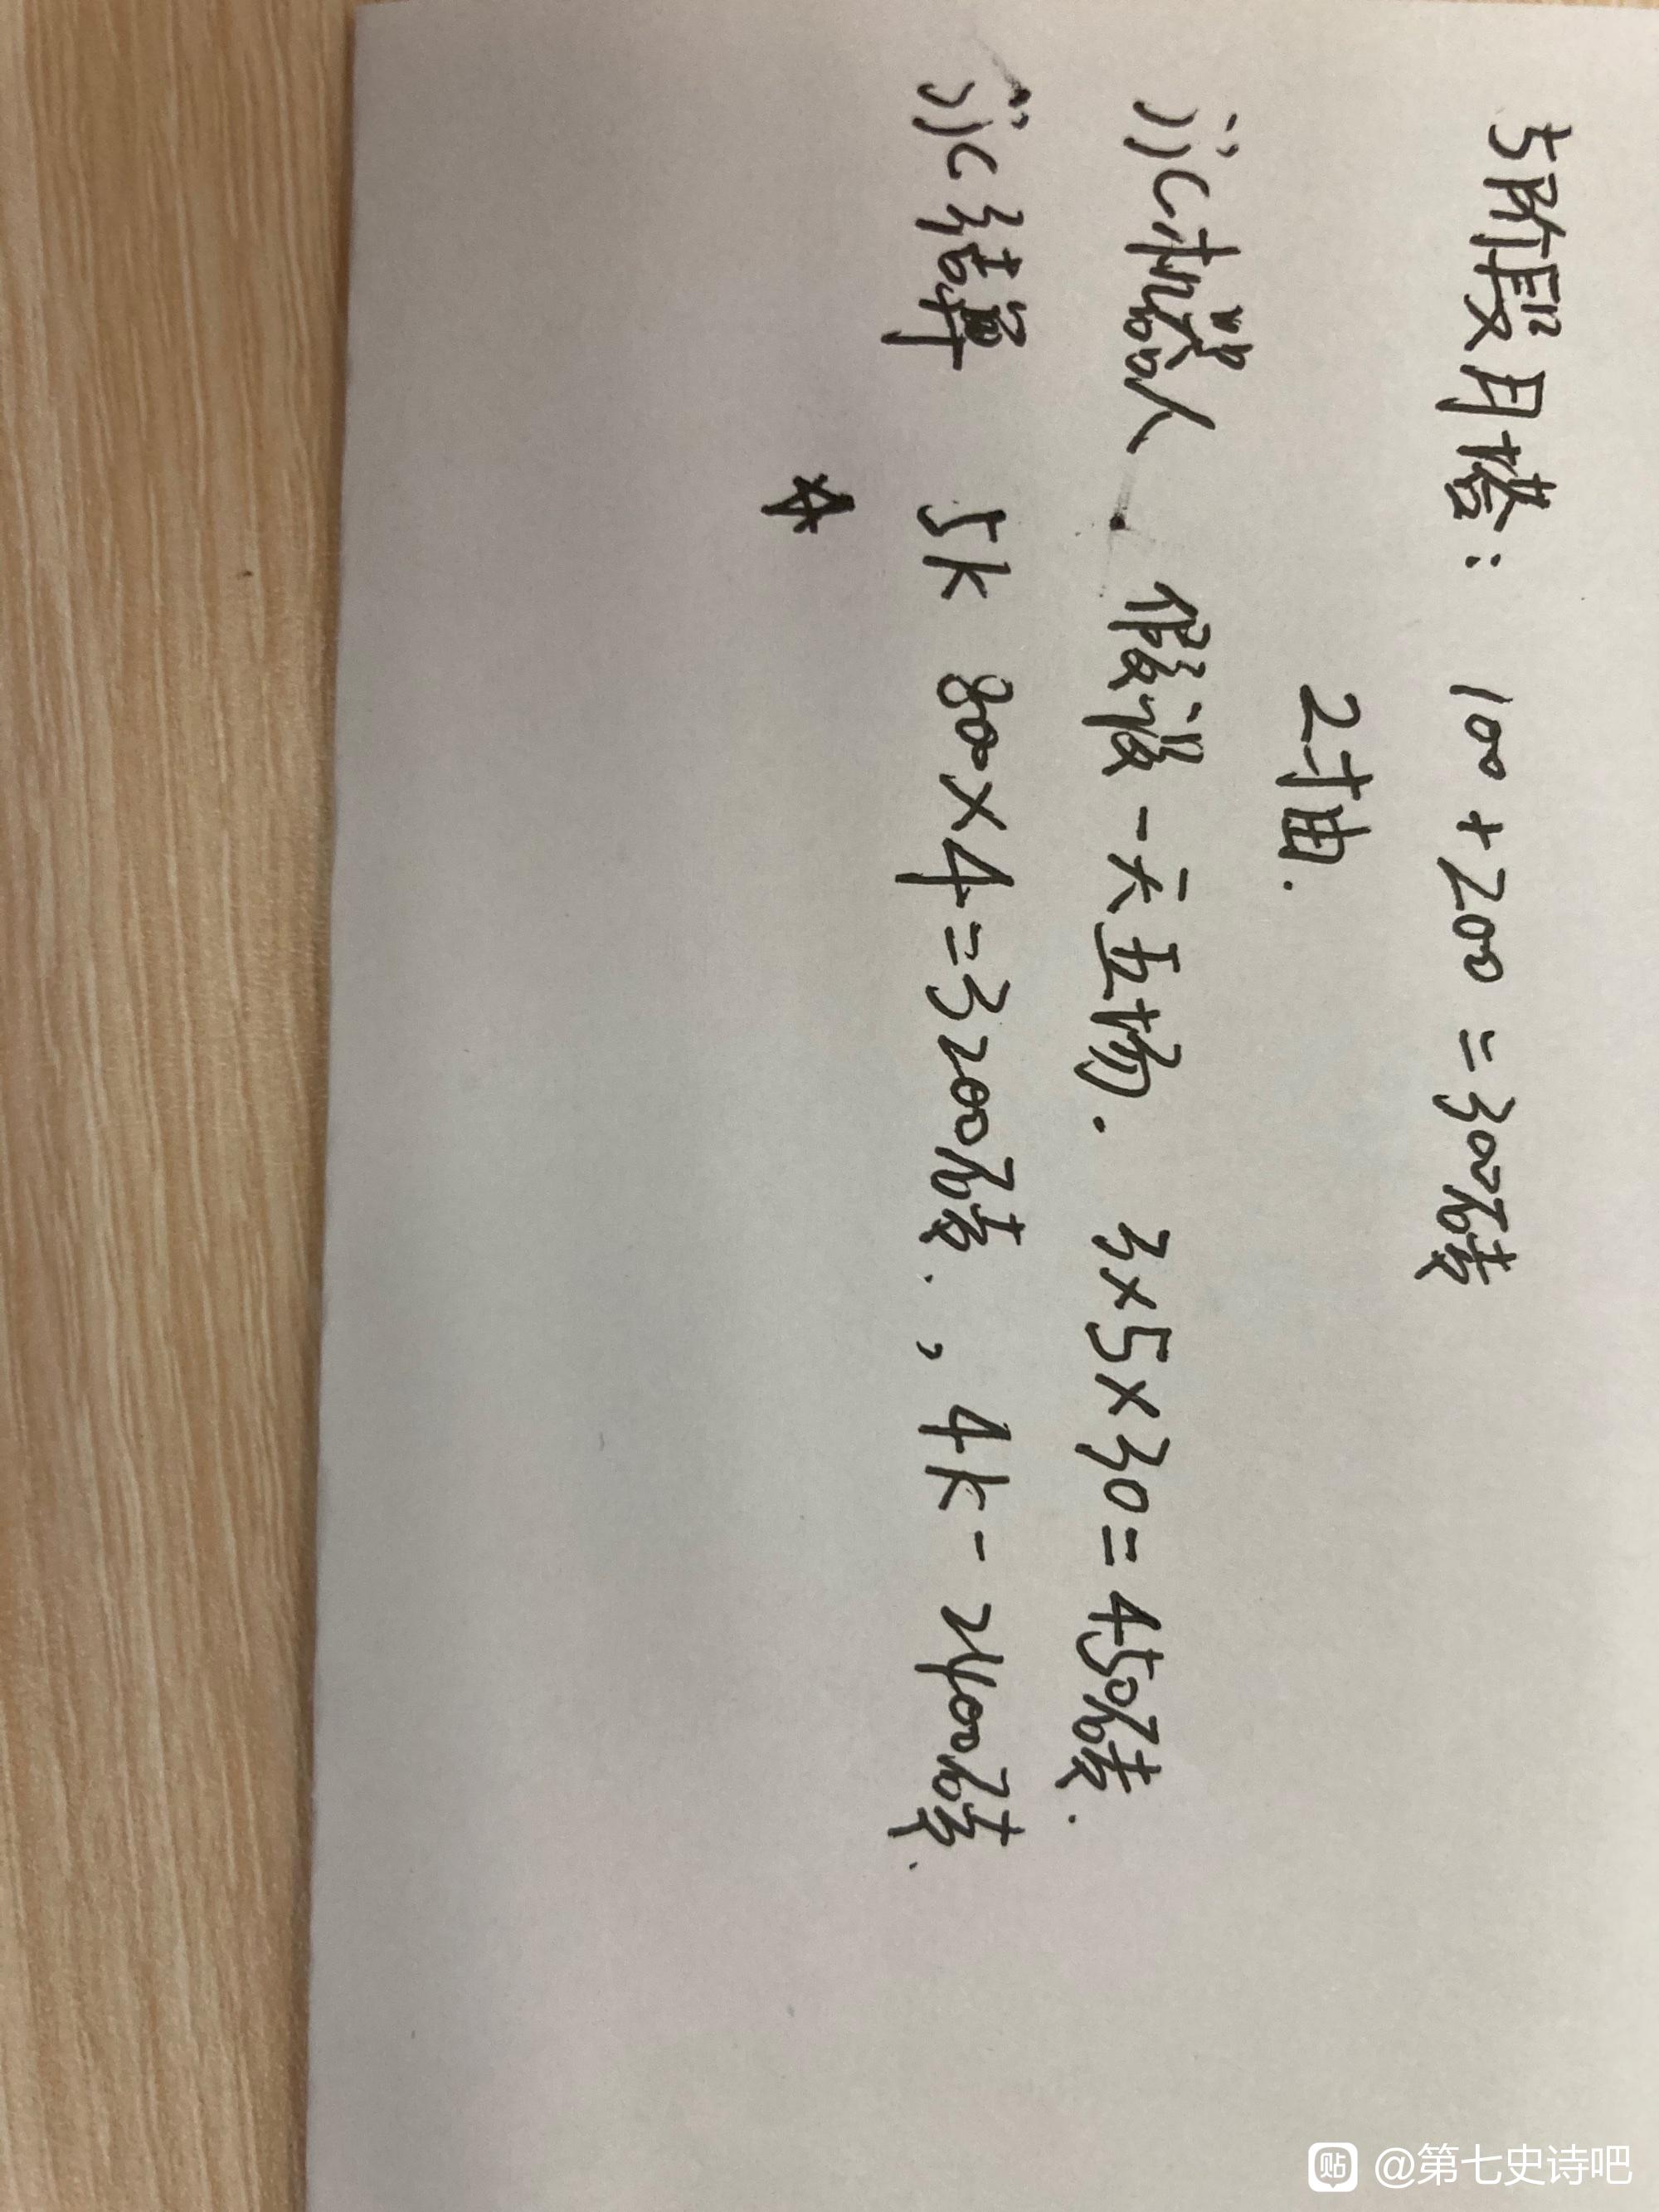 5阶段月塔： 100 + 200 = 300砖
2抽.
JJC机器人. 假设一天五场. 3×5×30=450砖.
JJC结算 5k 800×4=3200砖., 4k - 2400砖.
☆
贴 @第七史诗吧